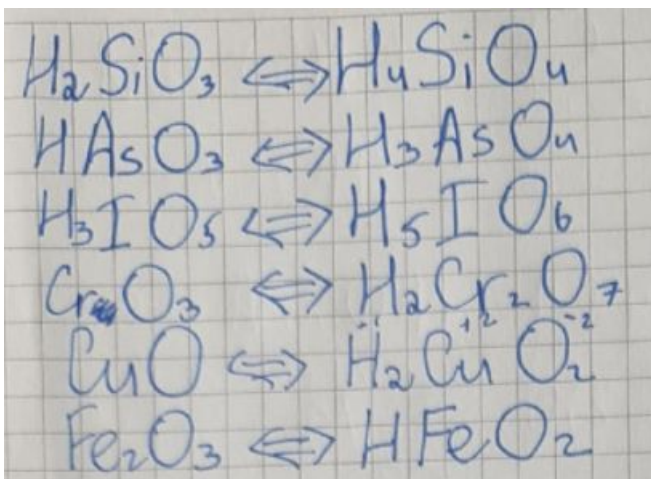 H₂SiO₃ ⇔ H₄SiO₄
HAsO₃ ⇔ H₃AsO₄
H₃IO₅ ⇔ H₅IO₆
CrO₃ ⇔ H₂Cr₂O₇
CuO ⇔ H₂CuO₂
Fe₂O₃ ⇔ HFeO₂